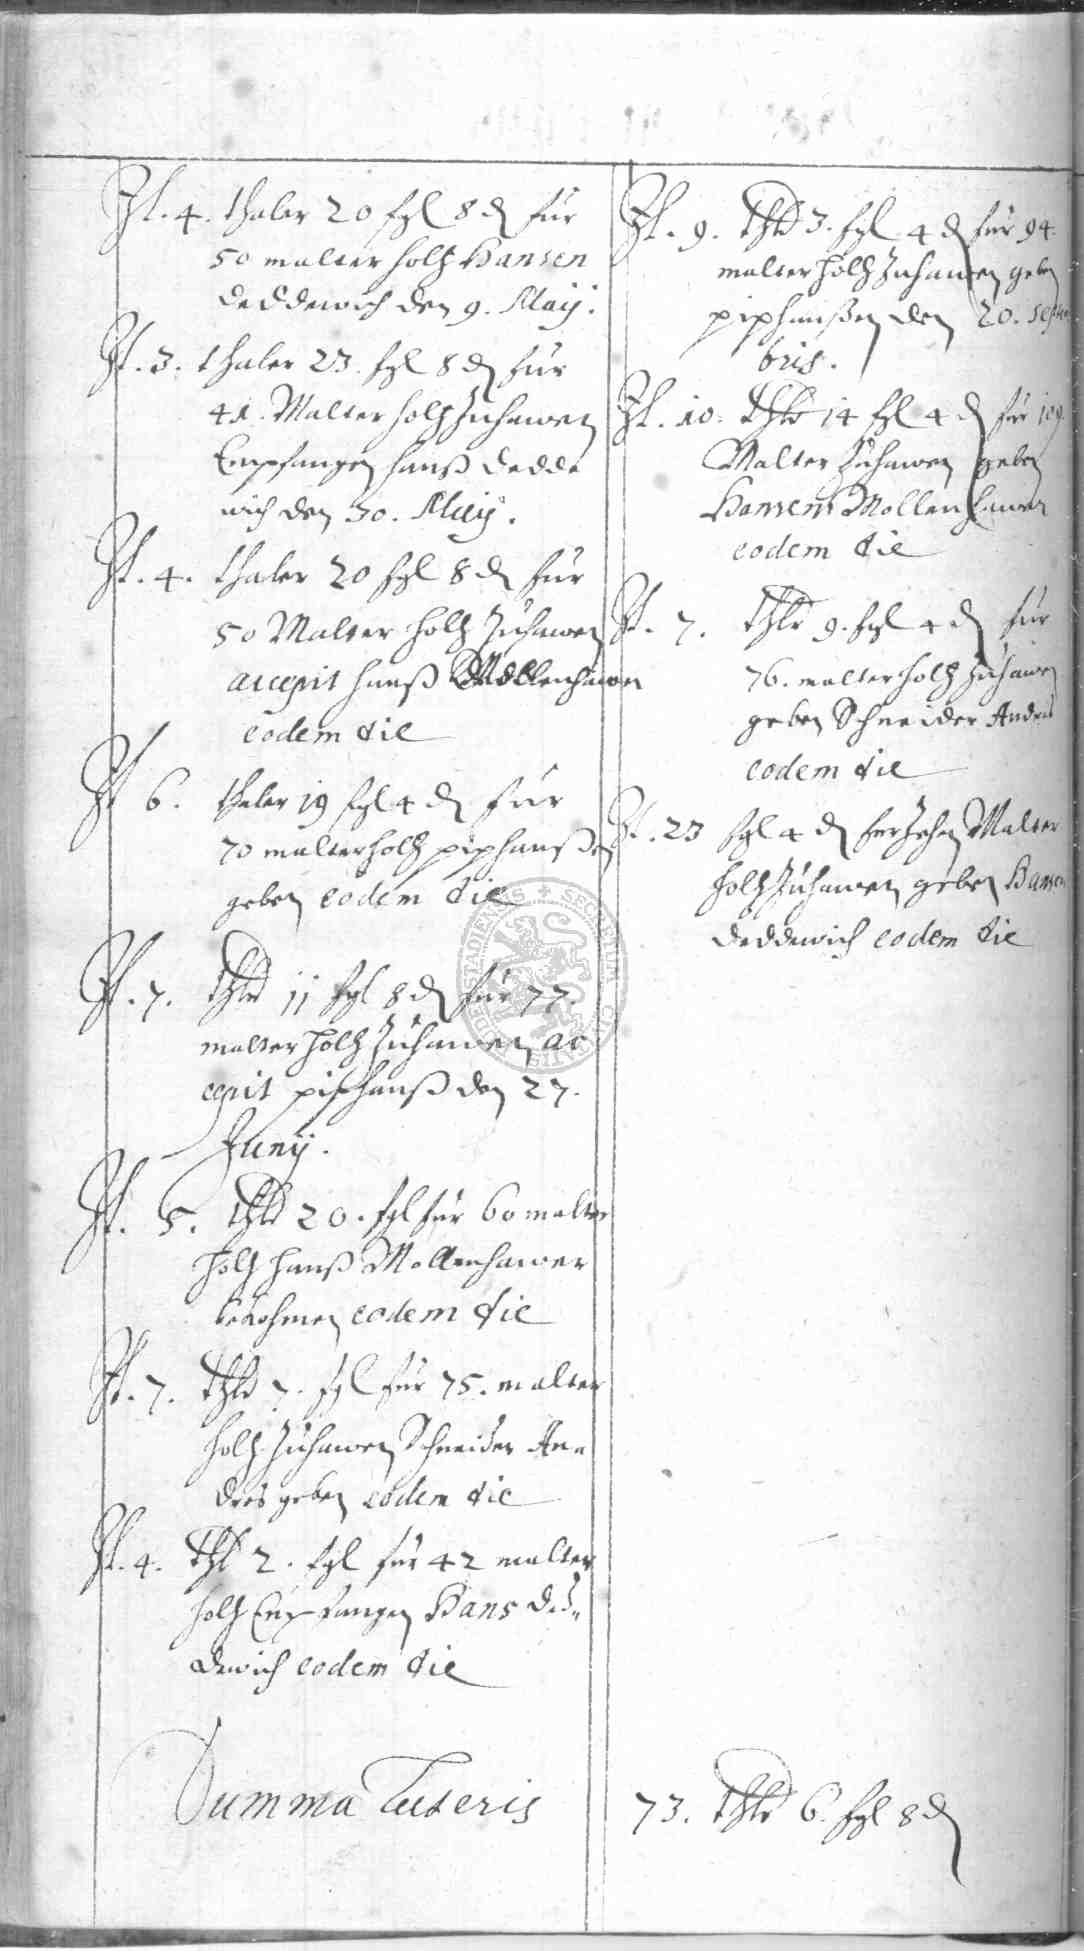 It. 4. thaler 20 sgl 8 d für
50 malter holtz Hansen
deddewich den 9. Maij.
It. 3. thaler 23. sgl 8 d für
41. Malter holtz Zuhawen
Empfangen hanß dedde
wich den 30. Maij.
It. 4. thaler 20 sgl 8 d für
50 Malter holtz Zuhawen
accepit hanß Mollenhawer
eodem die
It 6. thaler 19 sgl 4 d für
70 malter holtz piphanßen
geben eodem die
It. 7. thlr 11 sgl 8 d für 77.
malter holtz Zuhawen ac
cepit piphanß den 27.
Junij.
It. 5. thlr 20. sgl für 60 malter
holtz hanß Mollenhawer
bekohmen eodem die
It. 7. thlr 7. sgl für 75. malter
holtz Zuhawen Schneider An-
dres geben eodem die
It. 4. thlr 2. sgl für 42 malter
holtz Empfangen Hans ded-
dewich eodem die
It. 9. thlr 3. sgl 4 d für 94.
malter holtz Zuhawen geben
piphanßen den 20. Septem
bris.
It. 10. thlr 14 sgl 4 d für 109
Malter Zuhawen geben
Hansen Mollenhawer
eodem die
It. 7. thlr 9. sgl 4 d für
76. malter holtz Zuhawen
geben Schneider Andres
eodem die
It. 23 sgl 4 d für Zehen Malter
holtz Zuhawen geben Hansen
deddewich eodem die
Summa Lateris 73. thlr 6. sgl 8 d
SECRETUM